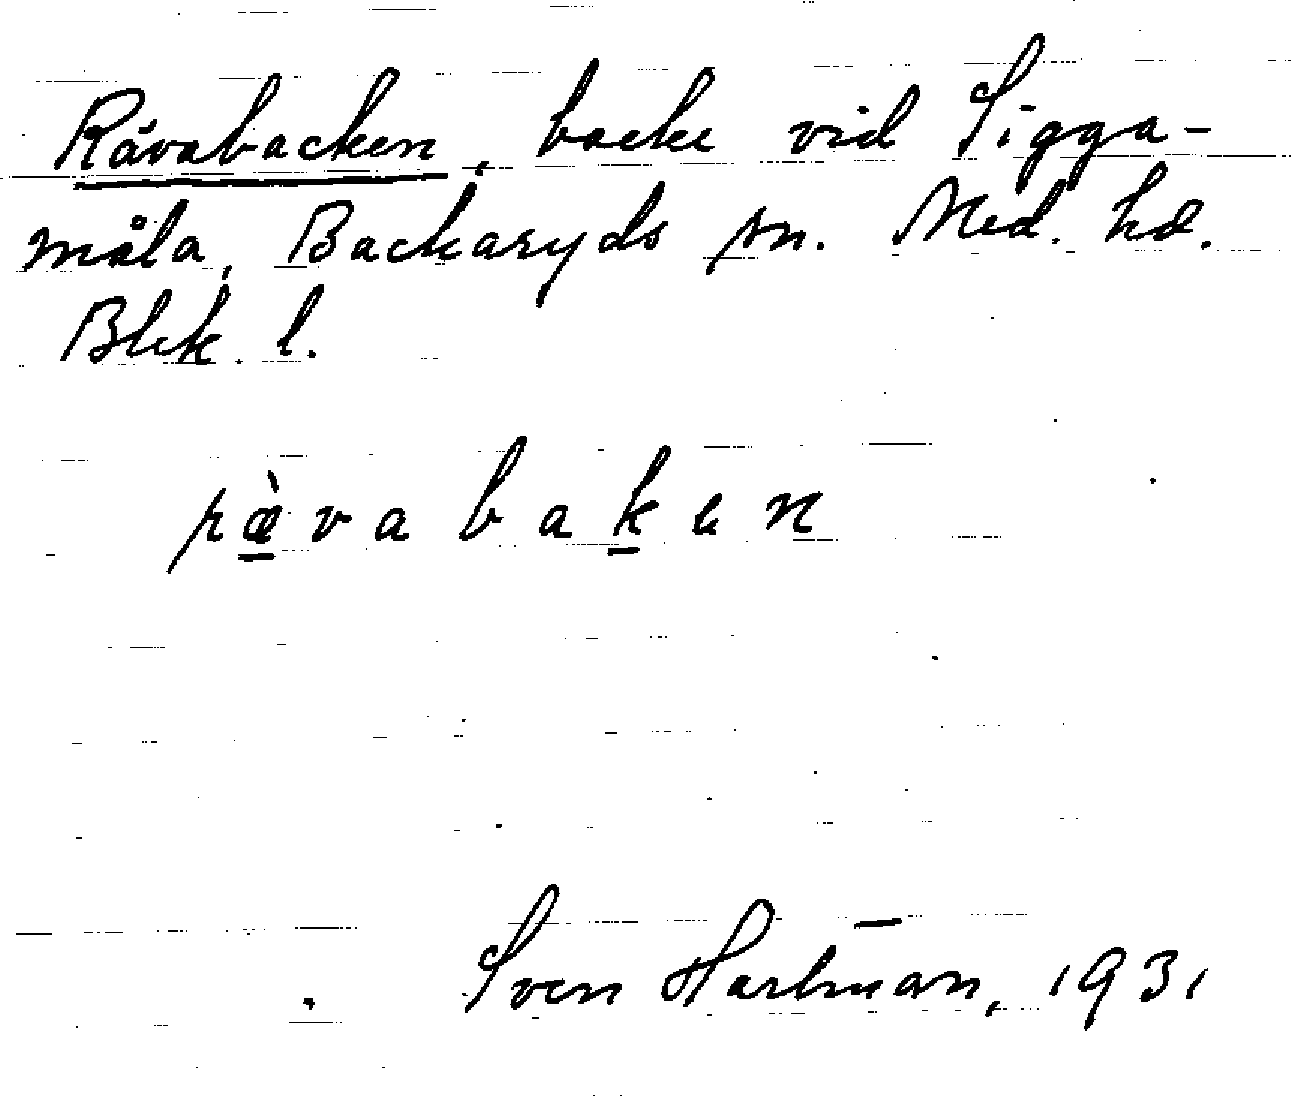 Rävabacken, backe vid Sigga-
måla, Backaryds sn. Med. hd.
Blek. l.
ræ̀vabaken
Sven Hartman, 1931